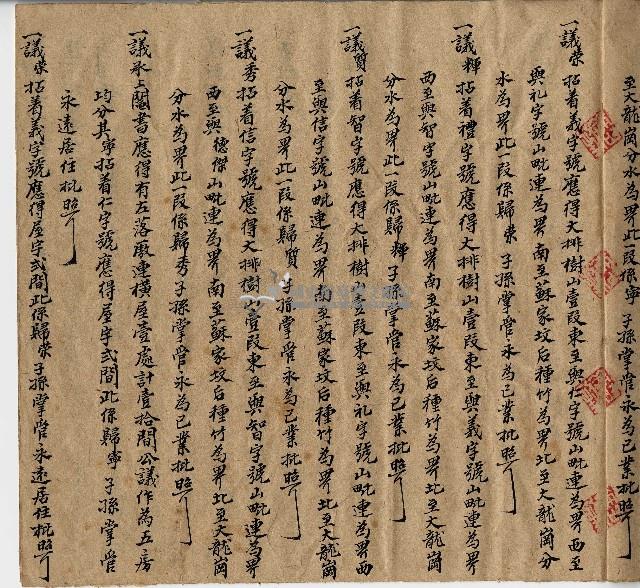 至大龍崗分水為界此一段係寧 子孫掌管永為己業批照
一議荣 拈着義字號應得大排樹山壹段東至與仁字號山毗連為界西至
與礼字號山毗連為界南至蘇家坟后種竹為界北至大龍崗分
水為界此一段係歸荣 子孫掌管永為己業批照
一議輝 拈着禮字號應得大排樹山壹段東至與義字號山毗連為界
西至與智字號山毗連為界南至蘇家坟后種竹為界北至大龍崗
分水為界此一段係歸輝 子孫掌管永為己業批照
一議質 拈着智字號應得大排樹山壹段東至與礼字號山毗連為界西
至與信字號山毗連為界南至蘇家坟后種竹為界北至大龍崗
分水為界此一段係歸質 子孫掌管永為己業批照
一議秀 拈着信字號應得大排樹山壹段東至與智字號山毗連為界
西至與德傑山毗連為界南至蘇家坟后種竹為界北至大龍崗
分水為界此一段係歸秀 子孫掌管永為己業批照
一議承上閹書應得有左落厫連橫屋壹處計壹拾間公議作為五房
均分其寧拈着仁字號應得屋宇弍間此係歸寧 子孫掌管
永遠居住批照
一議荣拈着義字號應得屋宇弍間此係歸荣 子孫掌管永遠居住批照